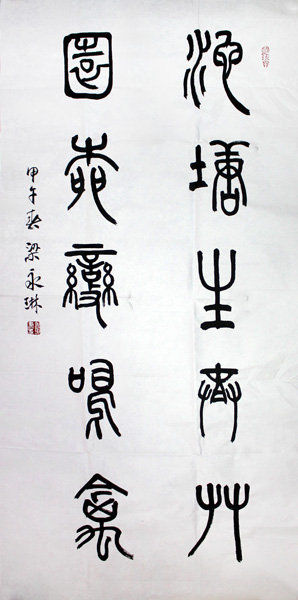 池塘生春草
園柳變鳴禽
甲午春梁永琳